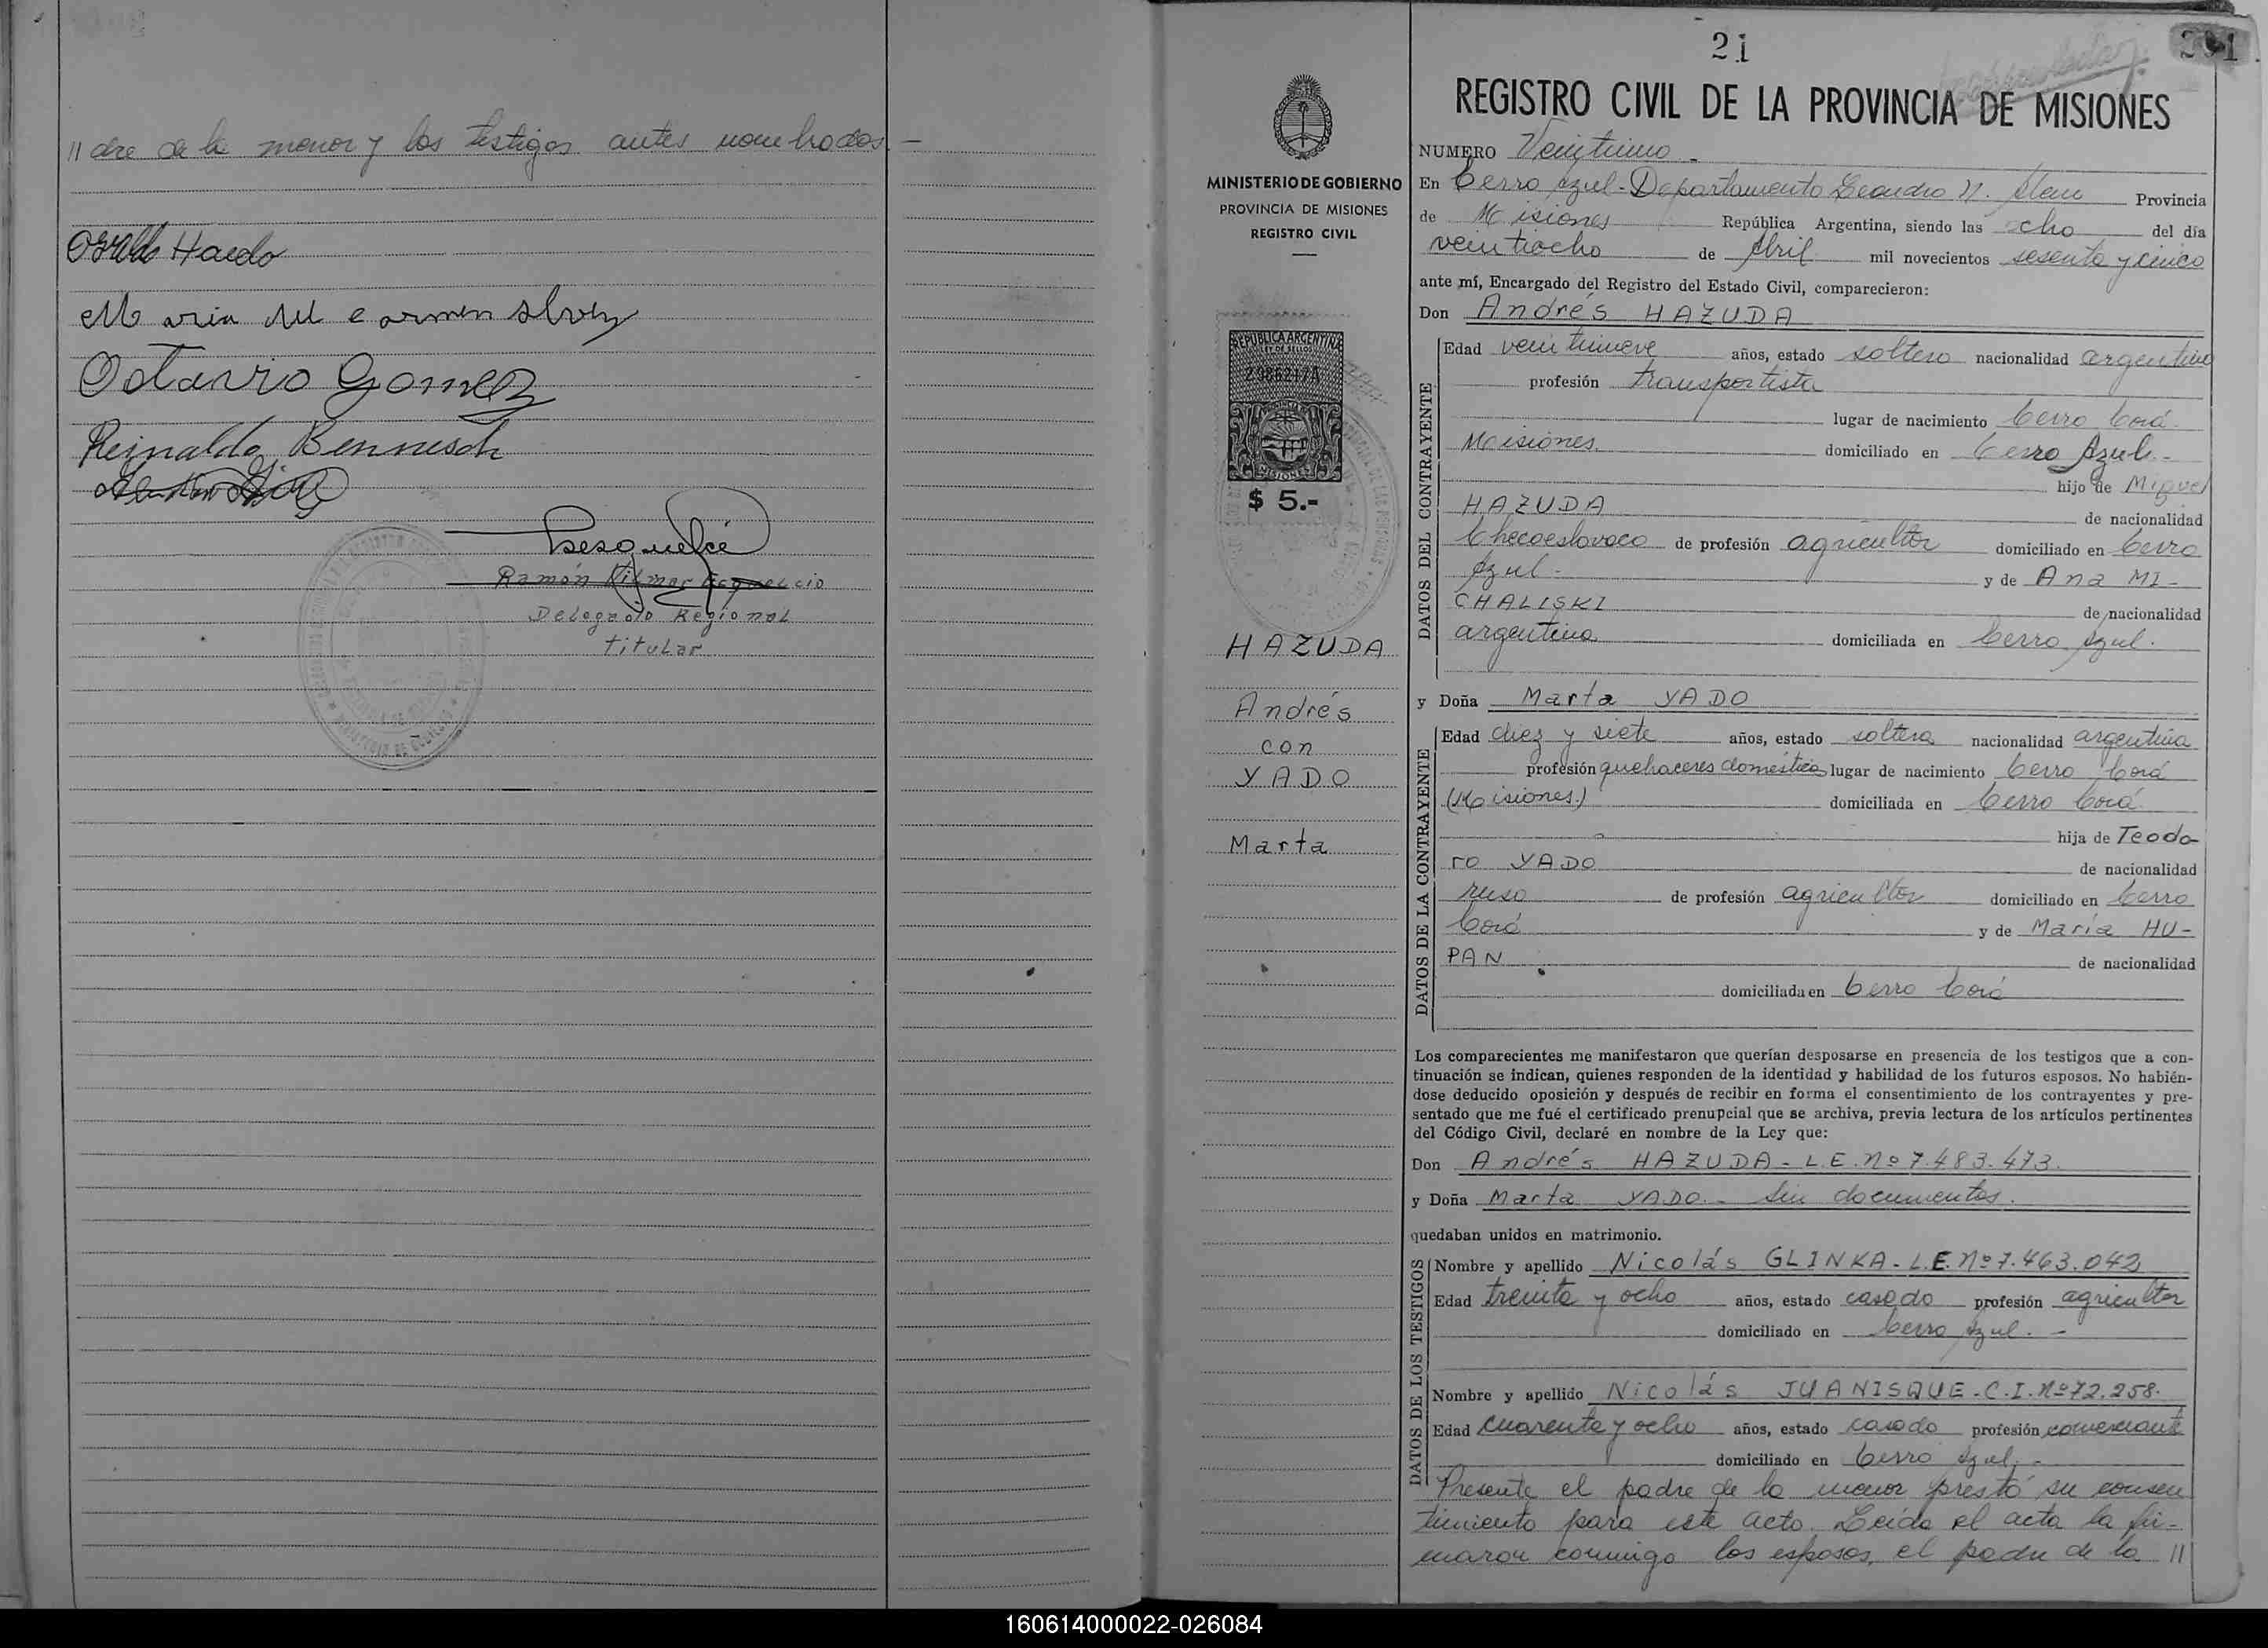 // dre de la menor y los testigos antes nombrados.—
Osvaldo Haedo
Maria del Carmen Alvez
Octavio Gomez
Reinaldo Bennesch
Ramón
Delegado Regional
titular
21
REGISTRO CIVIL DE LA PROVINCIA DE MISIONES
MINISTERIO DE GOBIERNO
PROVINCIA DE MISIONES
REGISTRO CIVIL
REPUBLICA ARGENTINA
LEY DE SELLOS
MISIONES
$ 5.-
HAZUDA
Andrés
con
YADO
Marta
NUMERO Veintiuno -
En Cerro Azul - Departamento Leandro N. Alem Provincia
de Misiones República Argentina, siendo las ocho del día
veintiocho de Abril mil novecientos sesenta y cinco
ante mí, Encargado del Registro del Estado Civil, comparecieron:
Don Andrés HAZUDA
DATOS DEL CONTRAYENTE
Edad veintinueve años, estado soltero nacionalidad argentino
profesión transportista
lugar de nacimiento Cerro Corá
Misiones domiciliado en Cerro Azul.-
hijo de Miguel
HAZUDA de nacionalidad
Checoeslovaco de profesión agricultor domiciliado en Cerro
Azul.- y de Ana MI-
CHALISKI de nacionalidad
argentina domiciliada en Cerro Azul.
y Doña Marta YADO
DATOS DE LA CONTRAYENTE
Edad diez y siete años, estado soltera nacionalidad argentina
profesión quehaceres domésticos lugar de nacimiento Cerro Corá
(Misiones) domiciliada en Cerro Corá
hija de Teodo-
ro YADO de nacionalidad
ruso de profesión agricultor domiciliado en Cerro
Corá y de María HU-
PAN de nacionalidad
domiciliada en Cerro Corá
Los comparecientes me manifestaron que querían desposarse en presencia de los testigos que a con-
tinuación se indican, quienes responden de la identidad y habilidad de los futuros esposos. No habién-
dose deducido oposición y después de recibir en forma el consentimiento de los contrayentes y pre-
sentado que me fué el certificado prenupcial que se archiva, previa lectura de los artículos pertinentes
del Código Civil, declaré en nombre de la Ley que:
Don Andrés HAZUDA - L.E. Nº 7.483.473.
y Doña Marta YADO.- Sin documentos.
quedaban unidos en matrimonio.
DATOS DE LOS TESTIGOS
Nombre y apellido Nicolás GLINKA - L.E. Nº 7.463.042
Edad treinta y ocho años, estado casado profesión agricultor
domiciliado en Cerro Azul. -
Nombre y apellido Nicolás JUANISQUE - C.I. Nº 72.258.
Edad cuarenta y ocho años, estado casado profesión comerciante
domiciliado en Cerro Azul. -
Presente el padre de la menor prestó su consen
timiento para este acto. Leida el acta la fir-
maron conmigo los esposos, el padre de la //
160614000022-026084